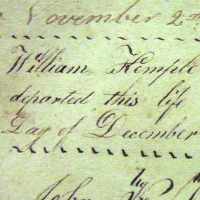 November 2
William Kemple
departed this life
Day of December
John